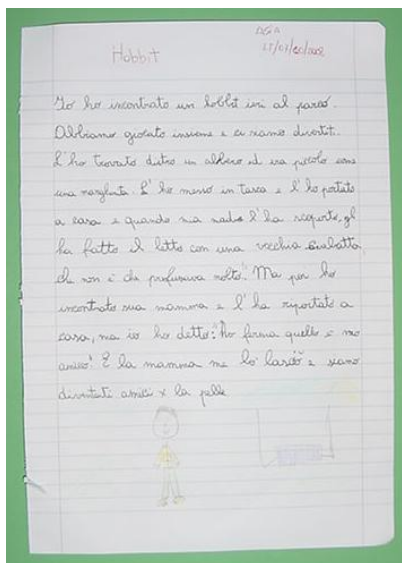 Hobbit
Io ho incontrato un hobbit ieri al parco.
Abbiamo giocato insieme e ci siamo divertit.
L'ho trovato dietro un albero ed era piccolo come
una margherita. L'ho messo in tasca e l'ho portato
a casa e quando mia madre l'ha scoperto, gl
ha fatto il letto con una vecchia ciabatta
che non è da profumava molto. Ma poi ho
incontrato sua mamma e l'ha riportato a
casa, ma io ho detto: "ho ferma quello è mio
amico! E la mamma me lo lasciò e siamo
diventati amici x la pelle